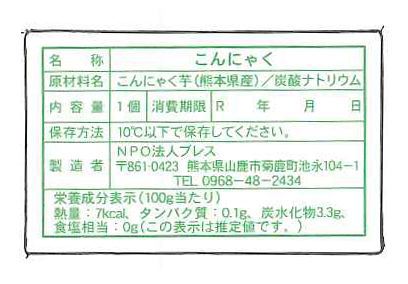 名称 こんにゃく
原材料名 こんにゃく芋(熊本県産)/炭酸ナトリウム
内容量 1個 消費期限 R 年 月 日
保存方法 10℃以下で保存してください。
製造者 NPO法人ブレス
〒861-0423 熊本県山鹿市菊鹿町池永104-1
TEL 0968-48-2434
栄養成分表示(100g当たり)
熱量：7kcal、タンパク質：0.1g、炭水化物3.3g、
食塩相当：0g(この表示は推定値です。)